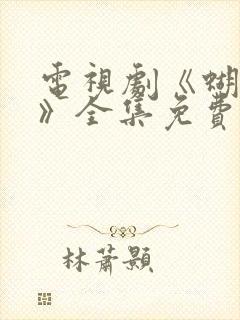 電視劇《蝴
》全集免費
林蕭顥